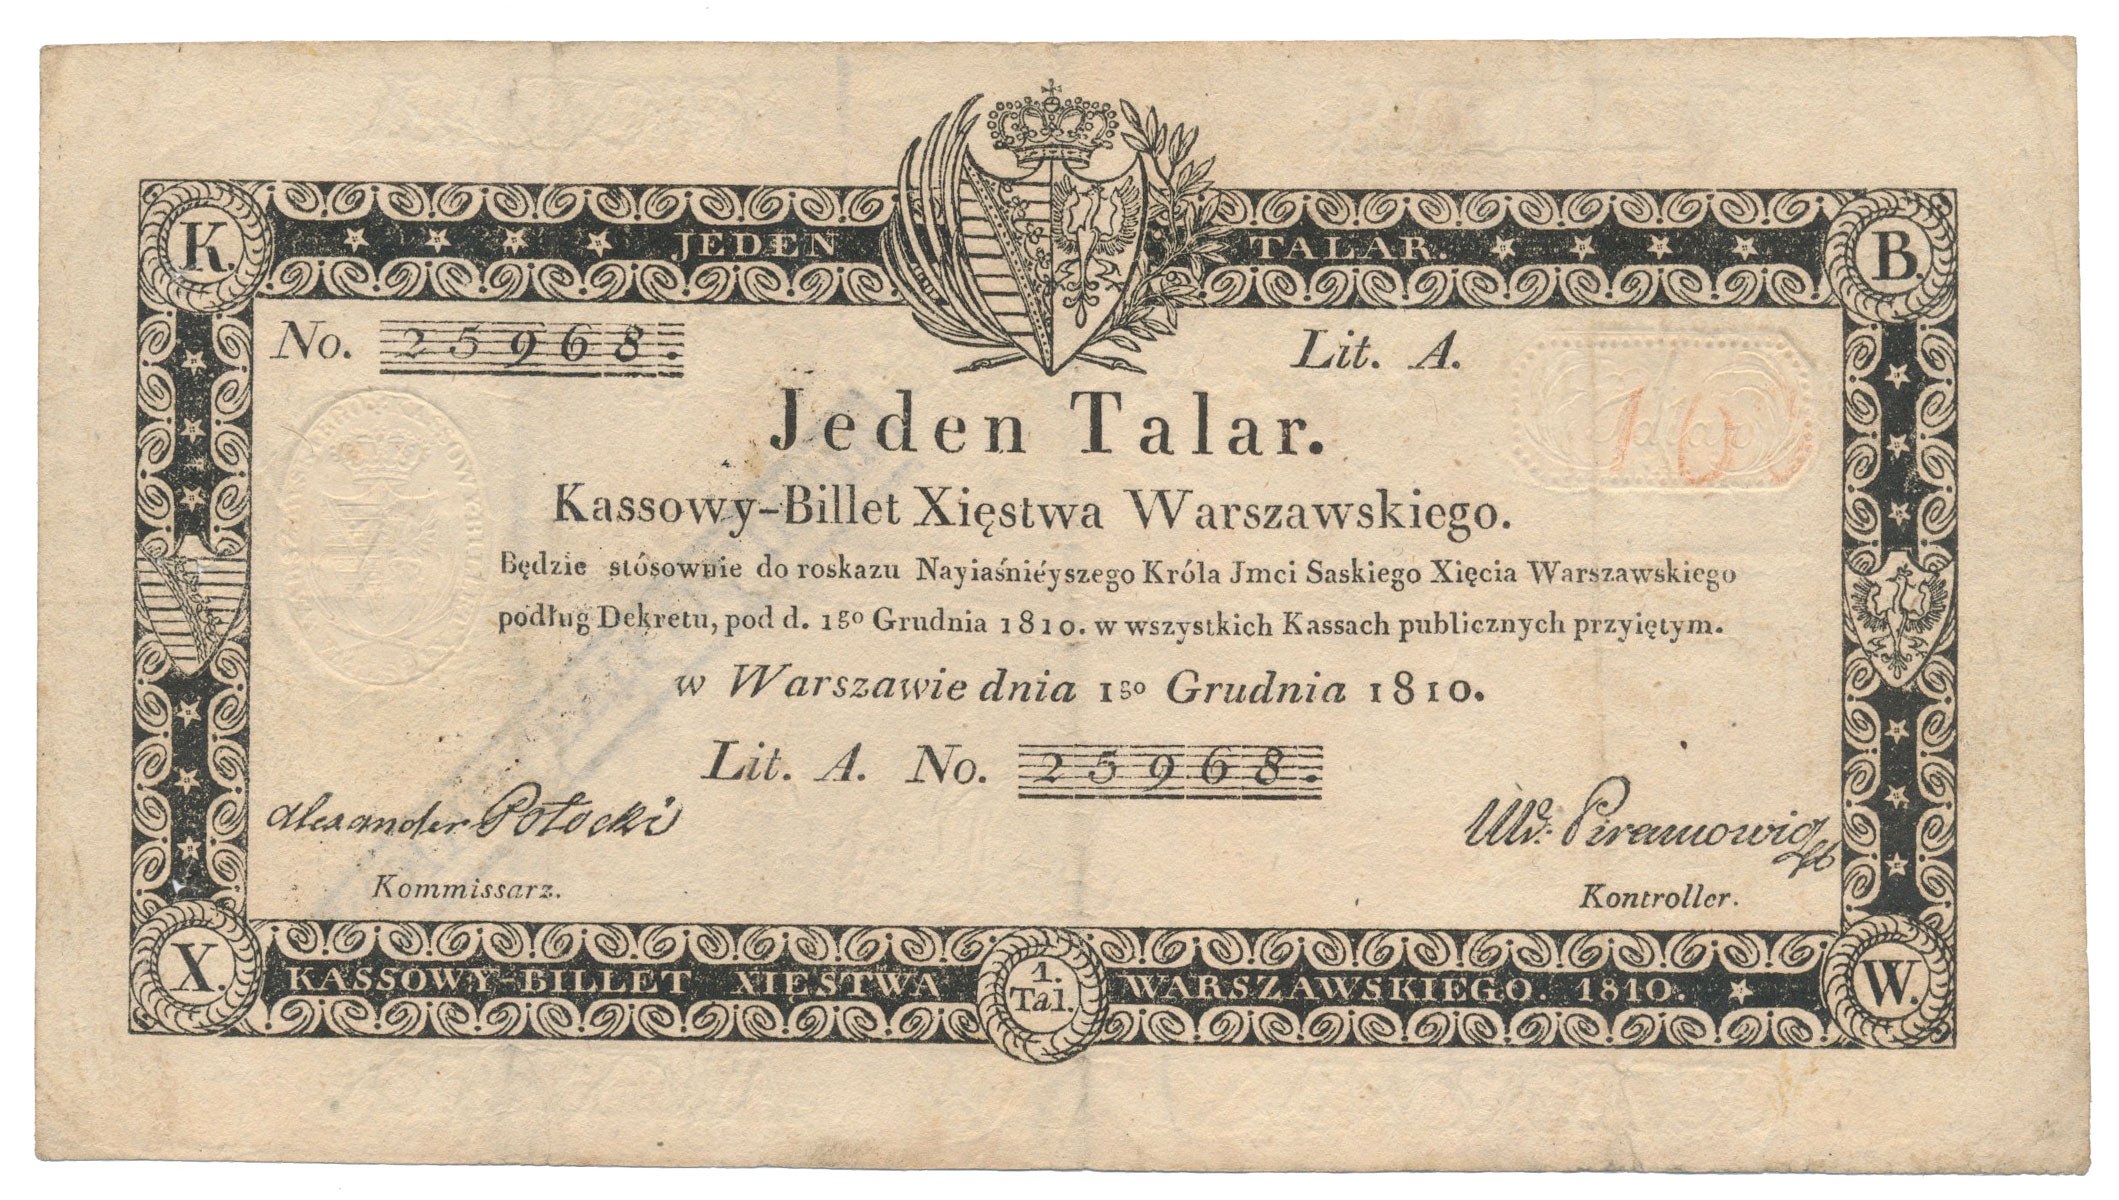 K. JEDEN TALAR. B.
No. 25968. Lit. A.
Jeden Talar.
Kassowy-Billet Xięstwa Warszawskiego.
Będzie stósownie do roskazu Nayiaśniéyszego Króla Jmci Saskiego Xięcia Warszawskiego
podług Dekretu, pod d. 1go Grudnia 1810. w wszystkich Kassach publicznych przyiętym.
w Warszawie dnia 1go Grudnia 1810.
Lit. A. No. 25968.
Alexander Potocki
Kommissarz. Kontroller.
X. KASSOWY-BILLET XIĘSTWA 1. Tal. WARSZAWSKIEGO. 1810. W.